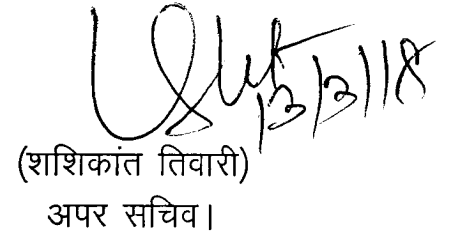 13/3/18
(शशिकांत तिवारी)
अपर सचिव।